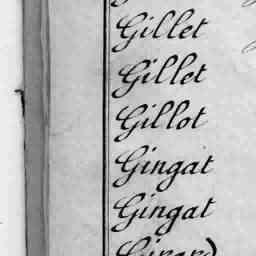 Gillet
Gillet
Gillot
Gingat
Gingat
Girard